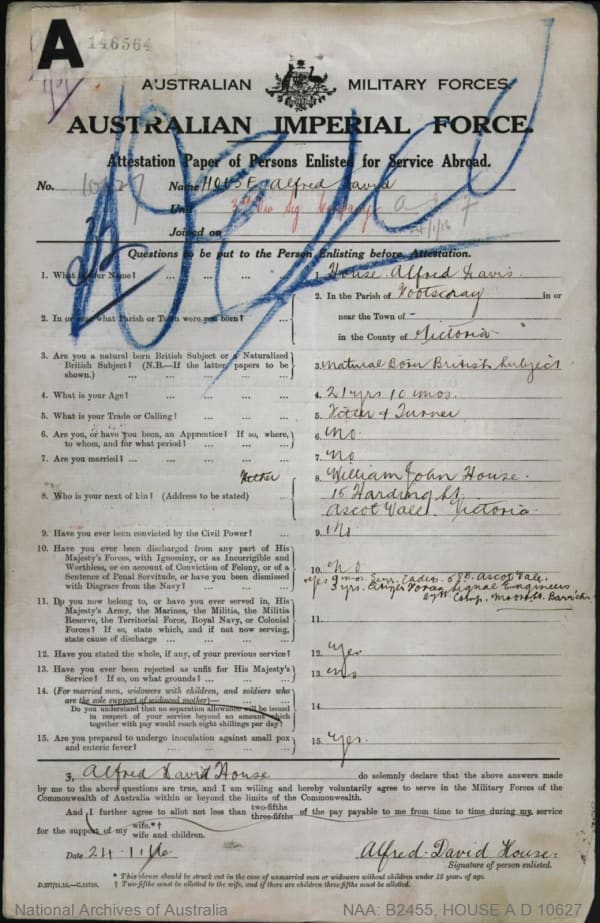 A
146564
AUSTRALIAN MILITARY FORCES.
AUSTRALIAN IMPERIAL FORCE.
Attestation Paper of Persons Enlisted for Service Abroad.
No. 10627 Name HOUSE Alfred David
Unit 3rd Div Sig Company
24/1/16
Joined on
Questions to be put to the Person Enlisting before Attestation.
1. What is your Name? ... ... ... 1. House Alfred David.
2. In or near what Parish or Town were you born? ... 2. In the Parish of Footscray in or
near the Town of -
in the County of Victoria
3. Are you a natural born British Subject or a Naturalized
British Subject? (N.B.—If the latter, papers to be
shown.) ... ... ... ... 3. Natural Born British Subject
4. What is your Age? ... ... ... 4. 21 yrs 10 mos.
5. What is your Trade or Calling? ... ... ... 5. Fitter & Turner
6. Are you, or have you been, an Apprentice? If so, where,
to whom, and for what period? ... ... ... 6. No.
7. Are you married? ... ... ... ... 7. No
8. Who is your next of kin? (Address to be stated) ... Father 8. William John House.
15 Harding St.
Ascot Vale. Victoria.
9. Have you ever been convicted by the Civil Power? ... 9. No
10. Have you ever been discharged from any part of His
Majesty's Forces, with Ignominy, or as Incorrigible and
Worthless, or on account of Conviction of Felony, or of a
Sentence of Penal Servitude, or have you been dismissed
with Disgrace from the Navy? ... ... ... 10. No
11. Do you now belong to, or have you ever served in, His
Majesty's Army, the Marines, the Militia, the Militia
Reserve, the Territorial Force, Royal Navy, or Colonial
Forces? If so, state which, and if not now serving,
state cause of discharge ... ... ... 11.
Yes 9 mos. Senr. Cadets Ascot Vale.
3 yrs. Citizen Forces Signal Engineers
Barracks
12. Have you stated the whole, if any, of your previous service? 12. Yes
13. Have you ever been rejected as unfit for His Majesty's
Service? If so, on what grounds? ... ... ... 13. No
14. (For married men, widowers with children, and soldiers who
are the sole support of widowed mother)—
Do you understand that no separation allowance will be issued
in respect of your service beyond an amount which
together with pay would reach eight shillings per day? 14.
15. Are you prepared to undergo inoculation against small pox
and enteric fever? ... ... ... ... 15. Yes.
I, Alfred David House do solemnly declare that the above answers made
by me to the above questions are true, and I am willing and hereby voluntarily agree to serve in the Military Forces of the
Commonwealth of Australia within or beyond the limits of the Commonwealth.
And I further agree to allot not less than two-fifths three-fifths of the pay payable to me from time to time during my service
for the support of my wife.*† wife and children.
Date 24.1.16 Alfred David House.
Signature of person enlisted.
* This clause should be struck out in the case of unmarried men or widowers without children under 18 years of age.
† Two-fifths must be allotted to the wife, and if there are children three-fifths must be allotted.
National Archives of Australia NAA: B2455, HOUSE A D 10627